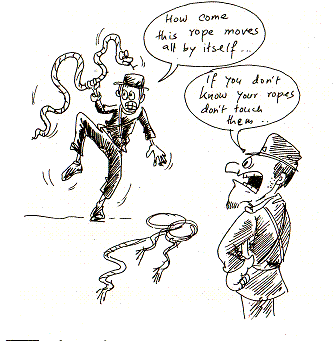 How come
this rope moves
all by itself...
If you don't
know your ropes
don't touch
them...